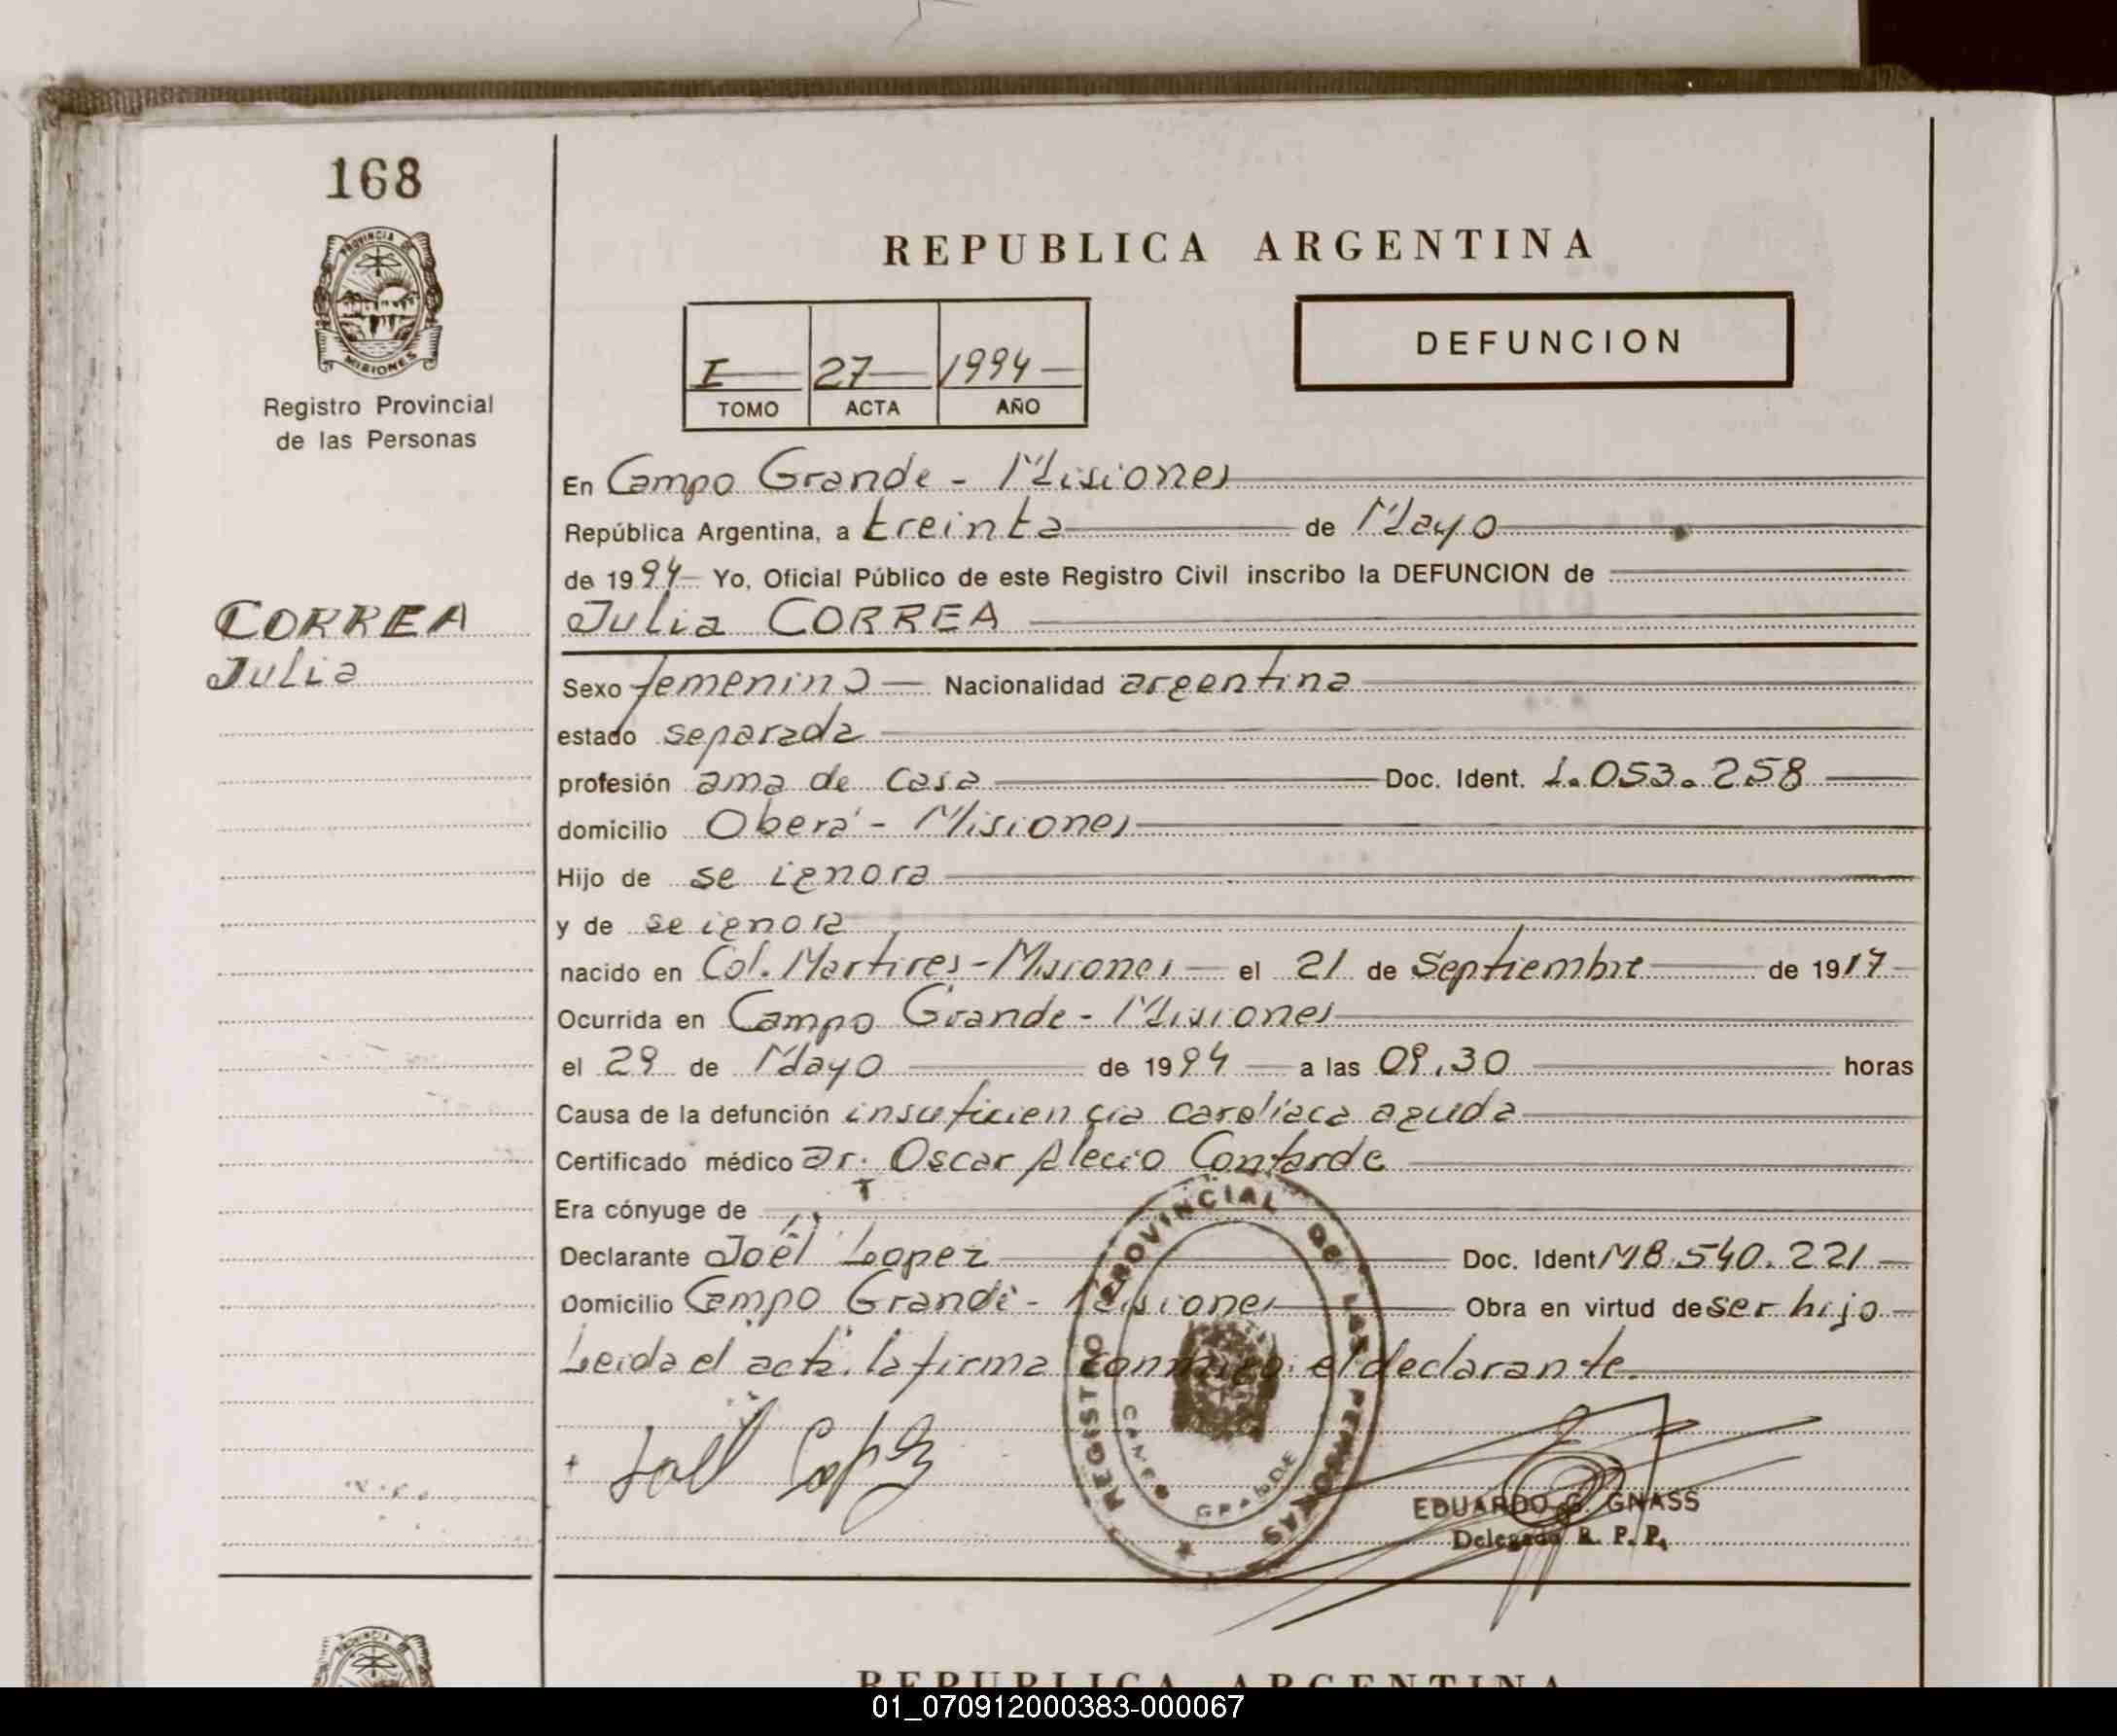 168
PROVINCIA DE
MISIONES
Registro Provincial
de las Personas
CORREA
Julia
REPUBLICA ARGENTINA
I 27 1994
TOMO ACTA AÑO
DEFUNCION
En Campo Grande - Misiones
República Argentina, a treinta de Mayo
de 1994 Yo, Oficial Público de este Registro Civil inscribo la DEFUNCION de
Julia CORREA
Sexo femenino Nacionalidad argentina
estado separada
profesión ama de casa Doc. Ident. 1.053.258
domicilio Oberá - Misiones
Hijo de se ignora
y de se ignora
nacido en Col. Martires - Misiones el 21 de Septiembre de 1917
Ocurrida en Campo Grande - Misiones
el 29 de Mayo de 1994 a las 09.30 horas
Causa de la defunción insuficiencia cardíaca aguda
Certificado médico Dr. Oscar Alecio
Era cónyuge de
Declarante Joël Lopez Doc. Ident M8.540.221
Domicilio Campo Grande - Misiones Obra en virtud de ser hijo
Leida el acta, la firma conmigo el declarante
REGISTRO PROVINCIAL DE LAS PERSONAS
CAMPO GRANDE
EDUARDO G. GNASS
Delegado R. P. P.
REPUBLICA ARGENTINA
01_070912000383-000067